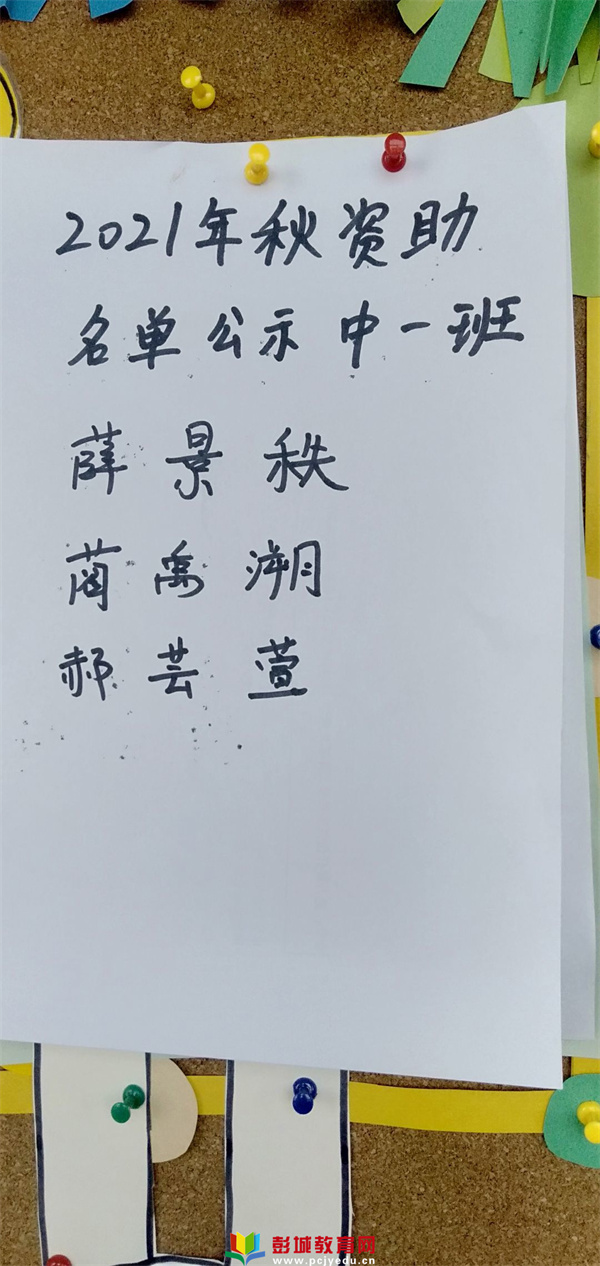 2021年秋资助
名单公示 中一班
薛景秩
蔺禹溯
郝芸萱
彭城教育网
www.pcjyedu.cn